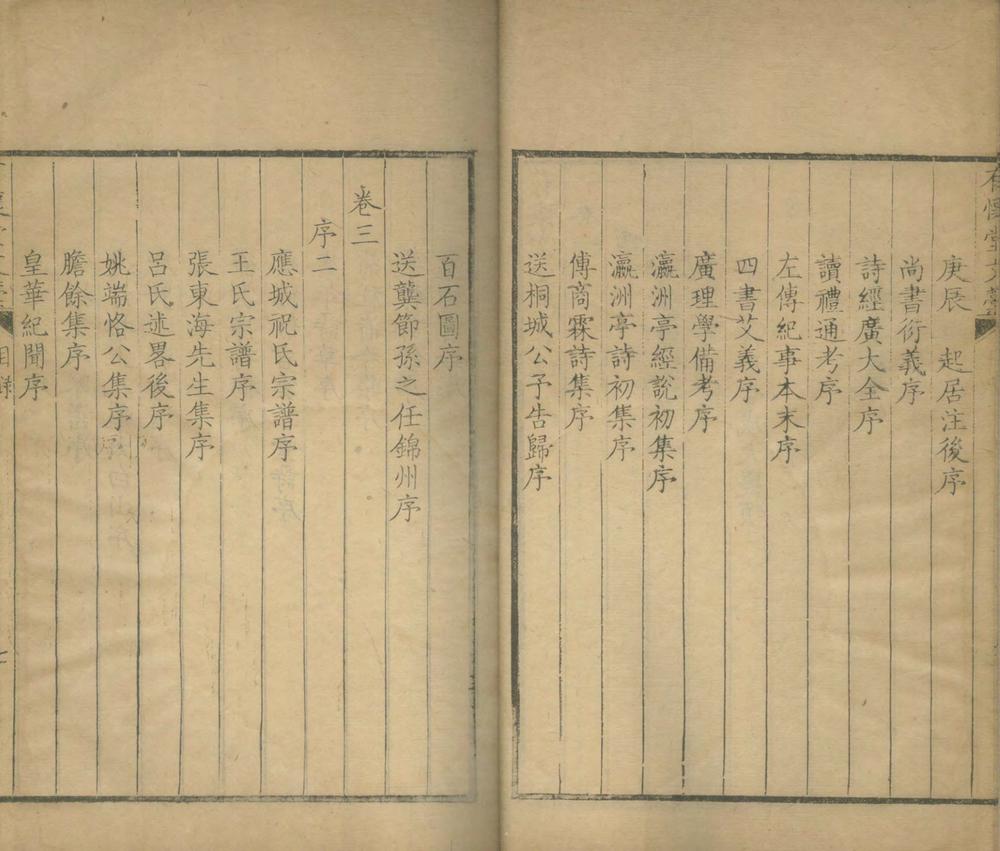 有懷堂文藁
庚辰 起居注後序
尚書衍義序
詩經廣大全序
讀禮通考序
左傳紀事本末序
四書艾義序
廣理學備考序
瀛洲亭經說初集序
瀛洲亭詩初集序
傅商霖詩集序
送桐城公予告歸序
百石圖序
送龔節孫之任錦州序
卷三
序二
應城祝氏宗譜序
王氏宗譜序
張東海先生集序
呂氏述畧後序
姚端恪公集序
膽餘集序
皇華紀聞序